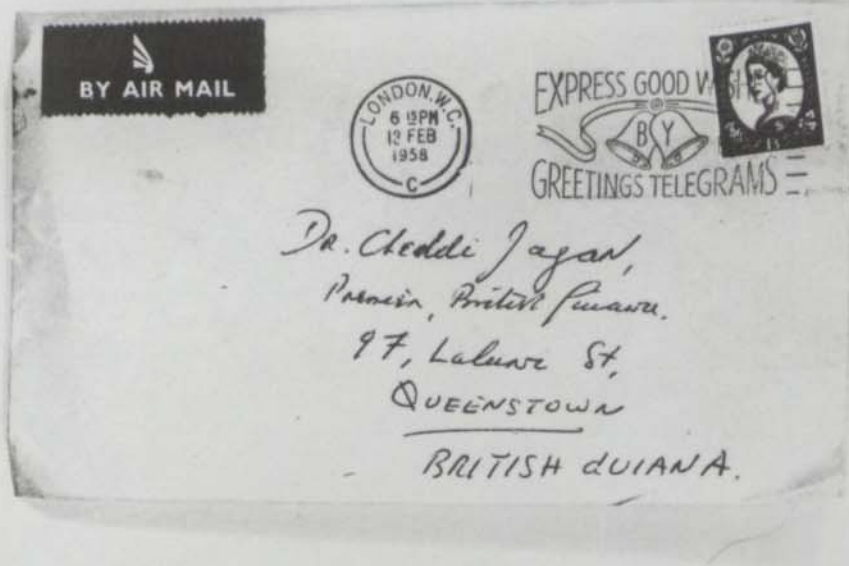 BY AIR MAIL
LONDON. W.C.
6 15PM
12 FEB
1958
C
EXPRESS GOOD WISH
BY
GREETINGS TELEGRAMS
Dr. Cheddi Jagan,
Premier, British Guiana.
97, Laluni St,
QUEENSTOWN
BRITISH GUIANA.